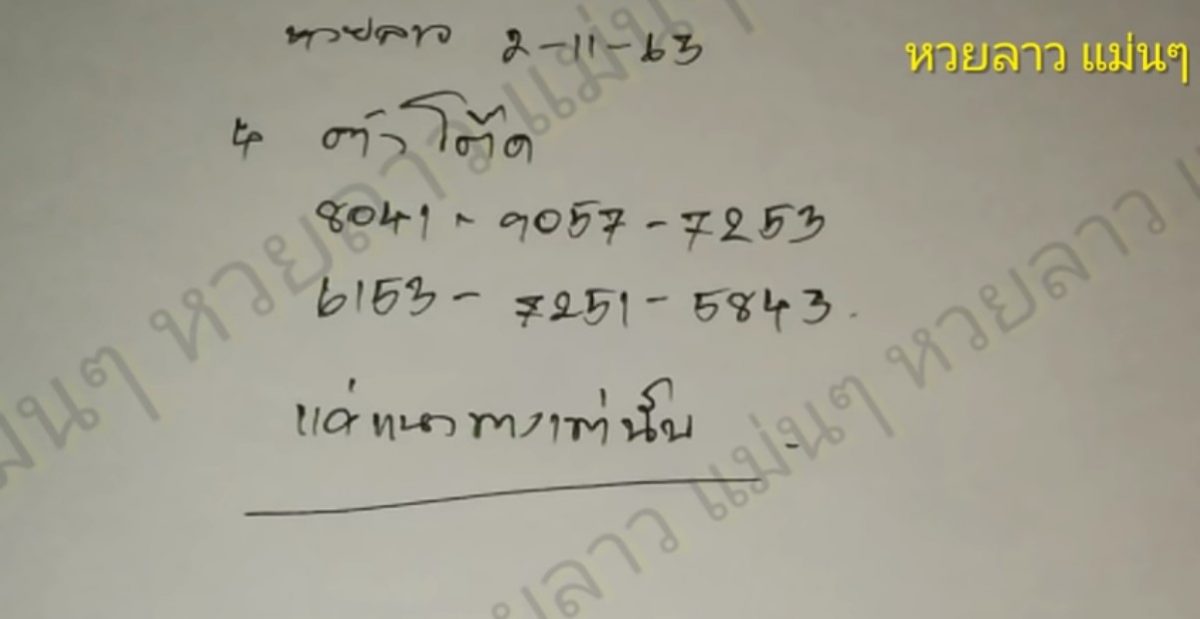 หวยลาว 2-11-63
หวยลาว แม่นๆ
4 ตัวโต๊ด
8041 - 9057 - 7253
6153 - 7251 - 5843.
แค่แนวทางเท่านั้น
หวยลาว แม่นๆ
หวยลาว แม่นๆ